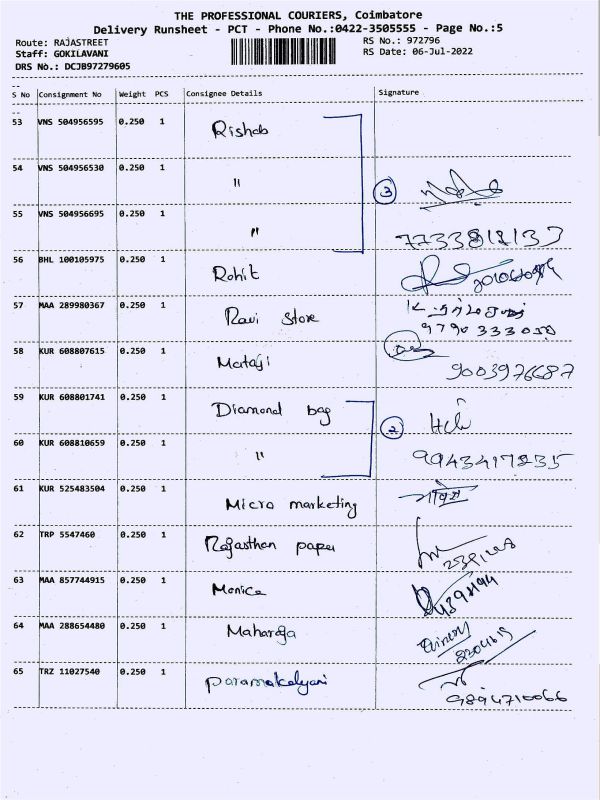 THE PROFESSIONAL COURIERS, Coimbatore
Delivery Runsheet - PCT - Phone No.:0422-3505555 - Page No.:5
Route: RAJASTREET RS No.: 972796
Staff: GOKILAVANI RS Date: 06-Jul-2022
DRS No.: DCJB97279605
S No Consignment No Weight PCS Consignee Details Signature
53 VNS 504956595 0.250 1 Rishab
54 VNS 504956530 0.250 1 " 3
55 VNS 504956695 0.250 1 "
56 BHL 100105975 0.250 1 Rohit
57 MAA 289980367 0.250 1 Ravi store
58 KUR 608807615 0.250 1 Mataji
9003976687
59 KUR 608801741 0.250 1 Diamond bag 2
60 KUR 608810659 0.250 1 " 9943417835
61 KUR 525483504 0.250 1 Micro marketing
62 TRP 5547460 0.250 1 Rajasthan paper
63 MAA 857744915 0.250 1 Monica
64 MAA 288654480 0.250 1 Maharaja
65 TRZ 11027540 0.250 1 paramakalyani
9894710066